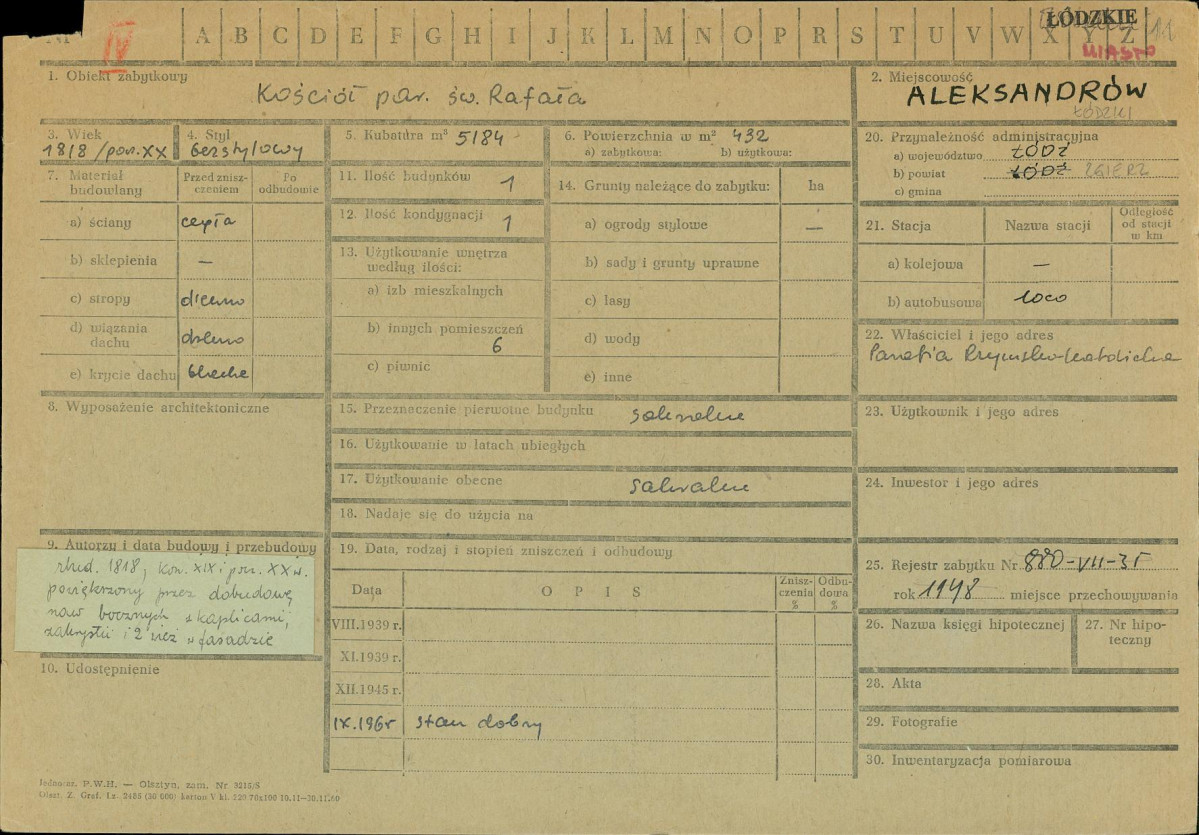 IV
A B C D E F G H I J K L M N O P R S T U V W X Y Z
ŁÓDZKIE
MIASTO
11
1. Obiekt zabytkowy
Kościół par. św. Rafała
2. Miejscowość
ALEKSANDRÓW
ŁÓDZKI
3. Wiek
1818/pocz.XX
4. Styl
bezstylowy
5. Kubatura m³ 5184
6. Powierzchnia w m² 432
a) zabytkowa: b) użytkowa:
20. Przynależność administracyjna
a) województwo ŁÓDŹ
b) powiat ŁÓDŹ ZGIERZ
c) gmina
7. Materiał budowlany
Przed zniszczeniem
Po odbudowie
a) ściany cegła
b) sklepienia —
c) stropy drewno
d) wiązania dachu drewno
e) krycie dachu blacha
11. Ilość budynków 1
12. Ilość kondygnacji 1
13. Użytkowanie wnętrza
według ilości:
a) izb mieszkalnych
b) innych pomieszczeń
6
c) piwnic
14. Grunty należące do zabytku: ha
a) ogrody stylowe —
b) sady i grunty uprawne
c) lasy
d) wody
e) inne
21. Stacja
Nazwa stacji
Odległość od stacji w km
a) kolejowa —
b) autobusowa loco
22. Właściciel i jego adres
Parafia Rzymsko-katolicka
8. Wyposażenie architektoniczne
15. Przeznaczenie pierwotne budynku sakralne
16. Użytkowanie w latach ubiegłych
17. Użytkowanie obecne sakralne
18. Nadaje się do użycia na
23. Użytkownik i jego adres
24. Inwestor i jego adres
9. Autorzy i data budowy i przebudowy
zbud. 1818; kon. XIX i pocz. XX w.
powiększony przez dobudowę
naw bocznych z kaplicami,
zakrystii i 2 wież w fasadzie
10. Udostępnienie
19. Data, rodzaj i stopień zniszczeń i odbudowy
Data
O P I S
Zniszczenia %
Odbudowa %
VIII.1939 r.
XI.1939 r.
XII.1945 r.
IX.1965 stan dobry
25. Rejestr zabytku Nr 880-VII-35
rok 1948 miejsce przechowywania
26. Nazwa księgi hipotecznej
27. Nr hipoteczny
28. Akta
29. Fotografie
30. Inwentaryzacja pomiarowa
Jednoncz. P.W.H. — Olsztyn, zam. Nr 3215/S
Olszt. Z. Graf. Lz. 2485 (30 000) karton V kl. 220 70x100 10.11—30.11.60